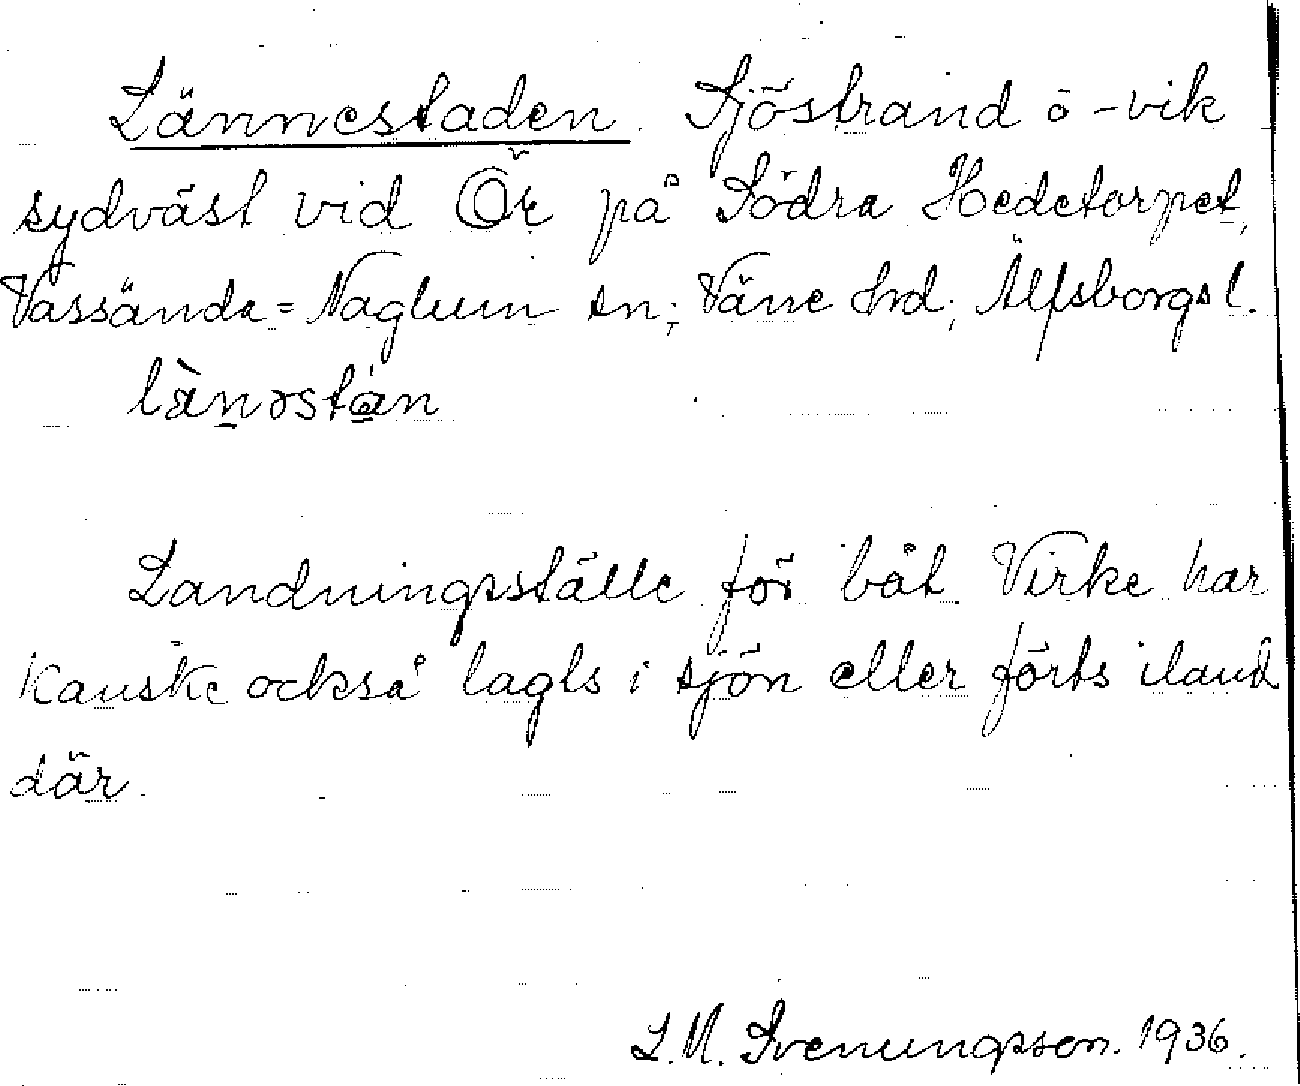 Lännestaden. Sjöstrand o -vik
sydväst vid Ör på Södra Hedetorpet,
Vassända=Naglum sn; Väne hrd; Älfsborgs l.
Landningsställe för båt. Virke har
kanske också lagts i sjön eller förts iland
där.
L. M. Svenungsson. 1936.